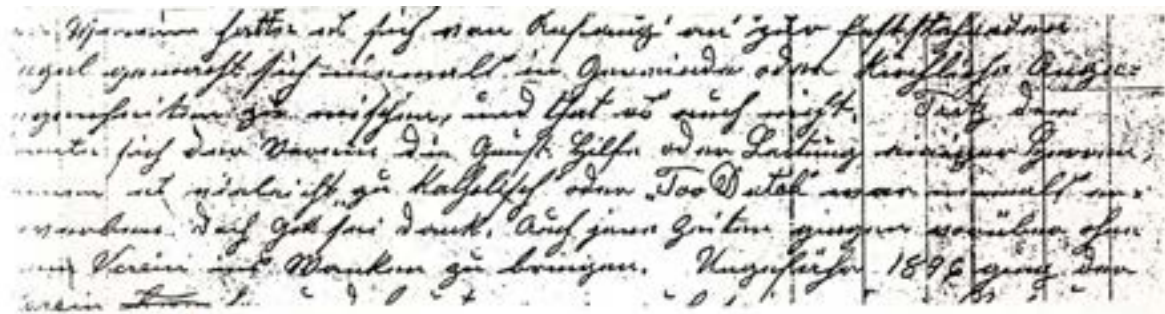 Verein hatte es sich von Anfang an zur feststehenden
gemacht sich niemals in Gemeinde oder Kirchliche Ange=
zu mischen, und that es auch nicht. Trotz dem
sich der Verein die Gunst Hilfe oder Leitung einiger Herren,
es vieleicht zu Katholisch oder „Too Dutch" war niemals er=
worben. Doch Gott sei dank. Auch jene Zeiten gingen vorüber ohne
Verein ins Wanken zu bringen. Ungefähr 1896 ging der